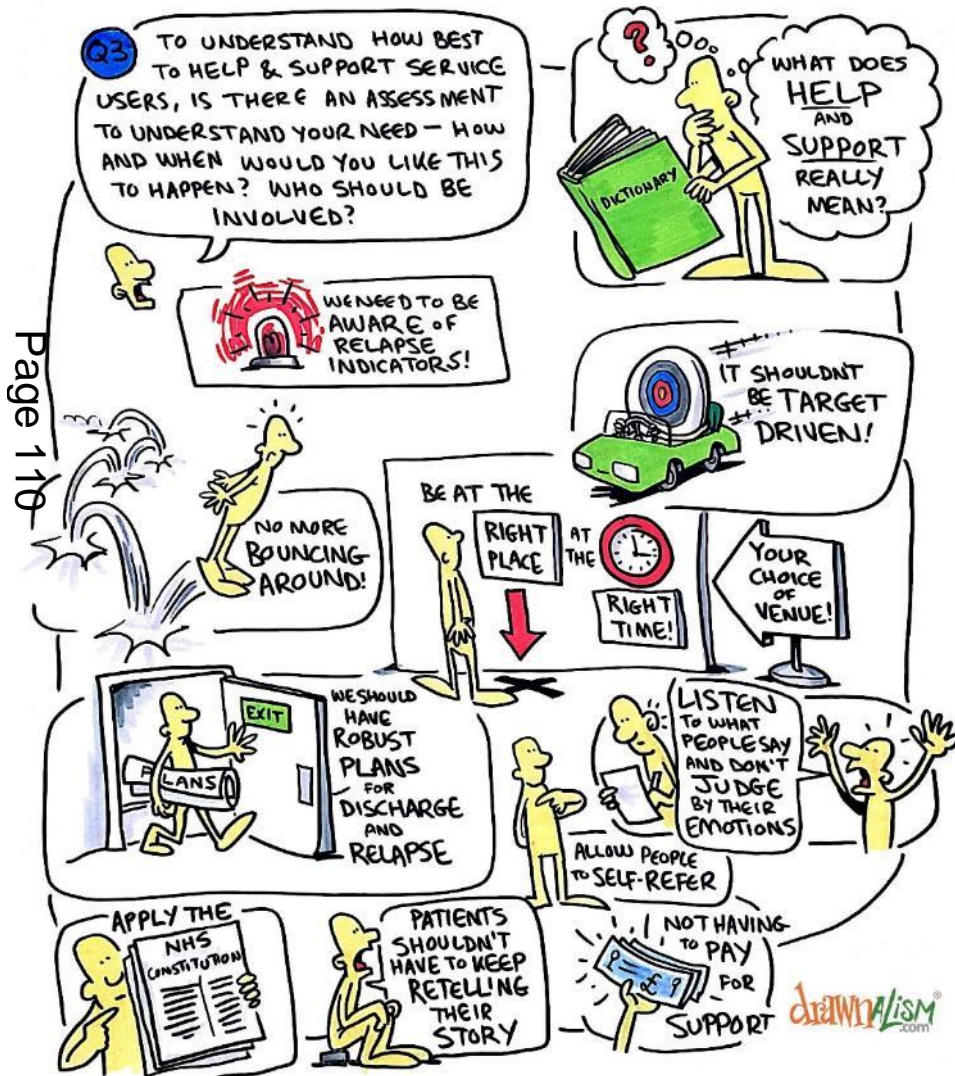 Q3 TO UNDERSTAND HOW BEST
TO HELP & SUPPORT SERVICE
USERS, IS THERE AN ASSESSMENT
TO UNDERSTAND YOUR NEED – HOW
AND WHEN WOULD YOU LIKE THIS
TO HAPPEN? WHO SHOULD BE
INVOLVED?
?
WHAT DOES
HELP
AND
SUPPORT
REALLY
MEAN?
DICTIONARY
WE NEED TO BE
AWARE OF
RELAPSE
INDICATORS!
Page 110
IT SHOULDNT
BE TARGET
DRIVEN!
NO MORE
BOUNCING
AROUND!
BE AT THE
RIGHT
PLACE
AT
THE
RIGHT
TIME!
YOUR
CHOICE
OF
VENUE!
EXIT
PLANS
WE SHOULD
HAVE
ROBUST
PLANS
FOR
DISCHARGE
AND
RELAPSE
LISTEN
TO WHAT
PEOPLE SAY
AND DON'T
JUDGE
BY THEIR
EMOTIONS
ALLOW PEOPLE
TO SELF-REFER
APPLY THE
NHS
CONSTITUTION
PATIENTS
SHOULDN'T
HAVE TO KEEP
RETELLING
THEIR
STORY
£
NOT HAVING
TO PAY
FOR
SUPPORT
drawnalism®
.com